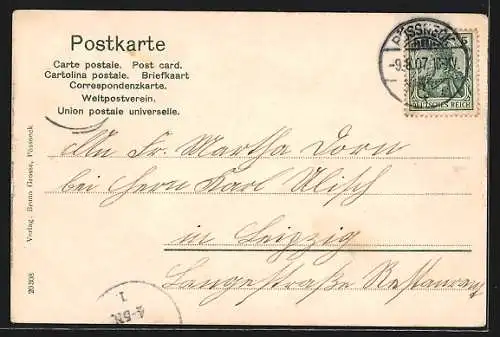 Postkarte
Carte postale. Post card.
Cartolina postale. Briefkaart
Correspondenzkarte.
Weltpostverein.
Union postale universelle.
PÖSSNECK
-9.8.07.
DEUTSCHES REICH
An Fr. Martha Dorn
bei Herrn Karl Ulisch
in Leipzig
Langestraße Restaurang
Verlag: Bruno Grosse, Pössneck
20398
4-5N.
1